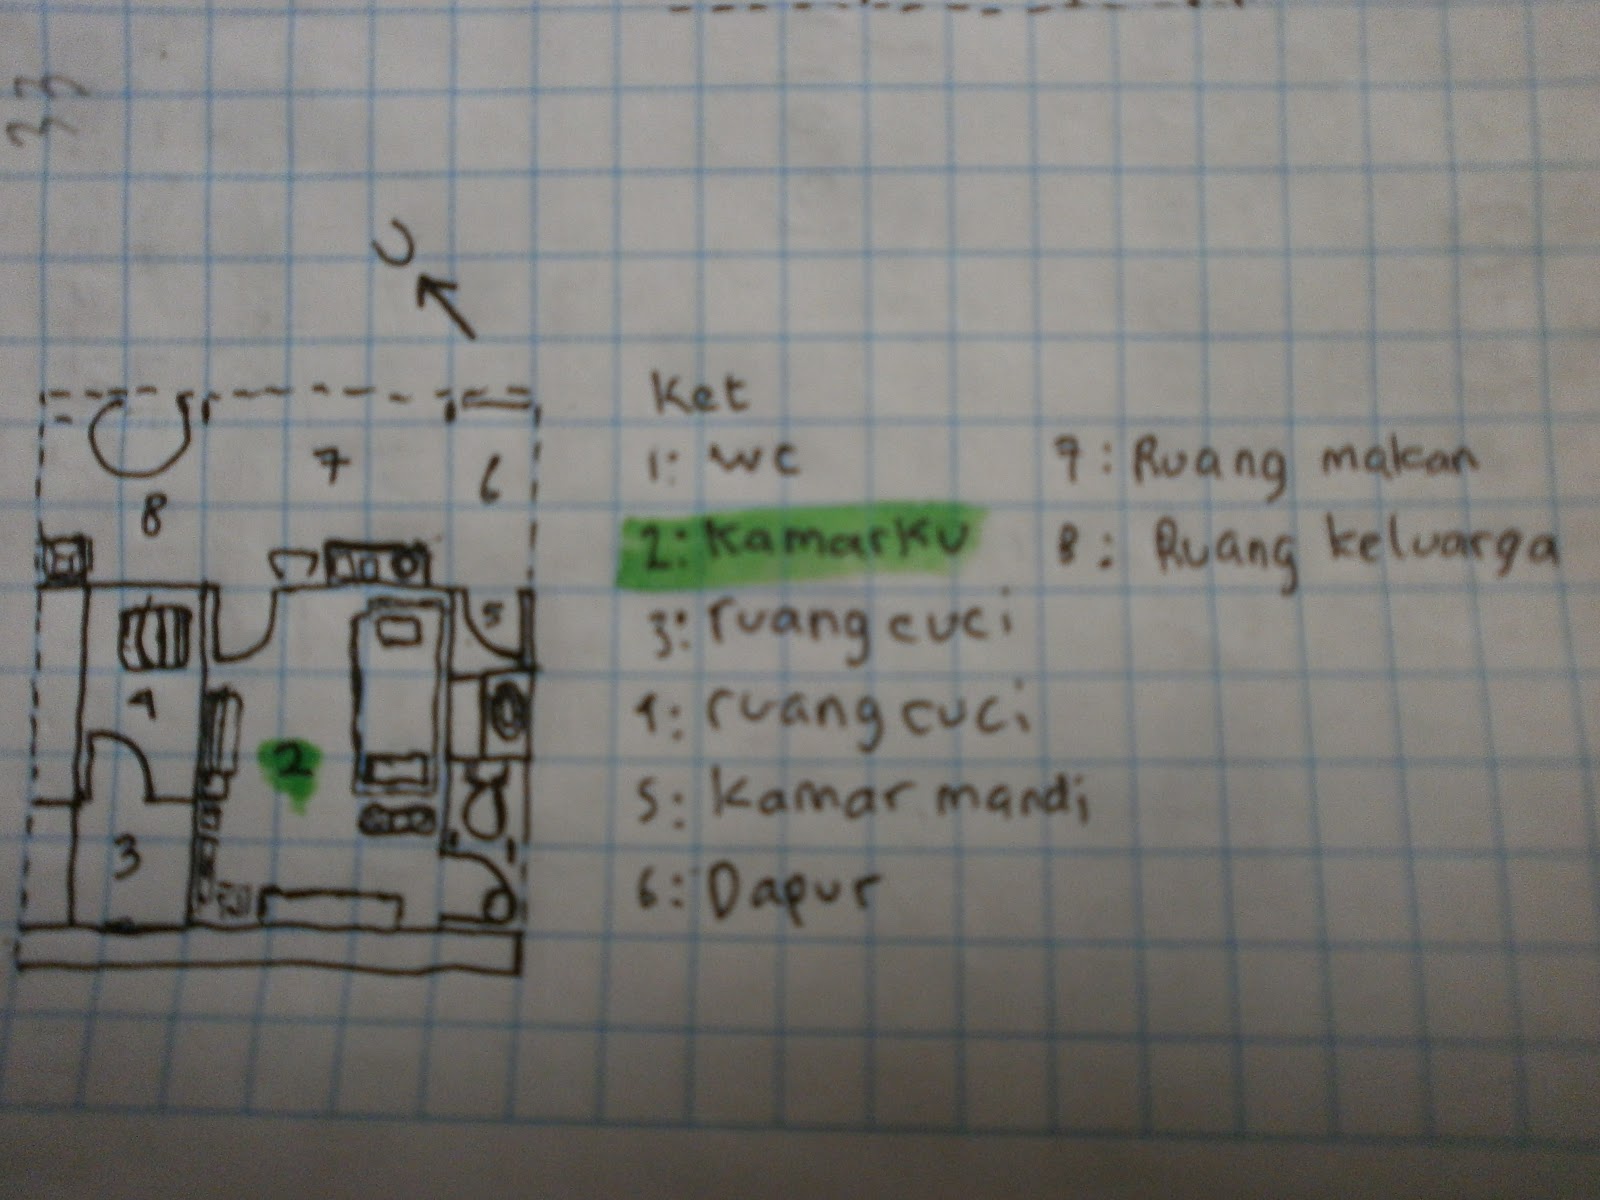 33
U
Ket
1: WC
2: KamarKu
3: ruang cuci
4: ruang cuci
5: Kamar mandi
6: Dapur
7: Ruang makan
8: Ruang keluarga
7
6
8
5
4
2
3